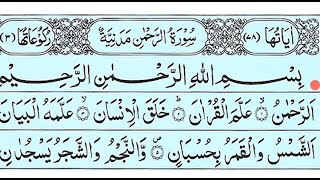 اٰيَاتُهَا (٧٨) سُوْرَةُ الرَّحْمٰنِ مَدَنِيَّةٌ رُكُوْعَاتُهَا (٣)
بِسْمِ اللّٰهِ الرَّحْمٰنِ الرَّحِيْمِ
اَلرَّحْمٰنُ ۙ﴿۱﴾ عَلَّمَ الْقُرْاٰنَ ؕ﴿۲﴾ خَلَقَ الْاِنْسَانَ ۙ﴿۳﴾ عَلَّمَهُ الْبَيَانَ
اَلشَّمْسُ وَالْقَمَرُ بِحُسْبَانٍ ۪﴿۵﴾ وَّالنَّجْمُ وَالشَّجَرُ يَسْجُدٰنِ